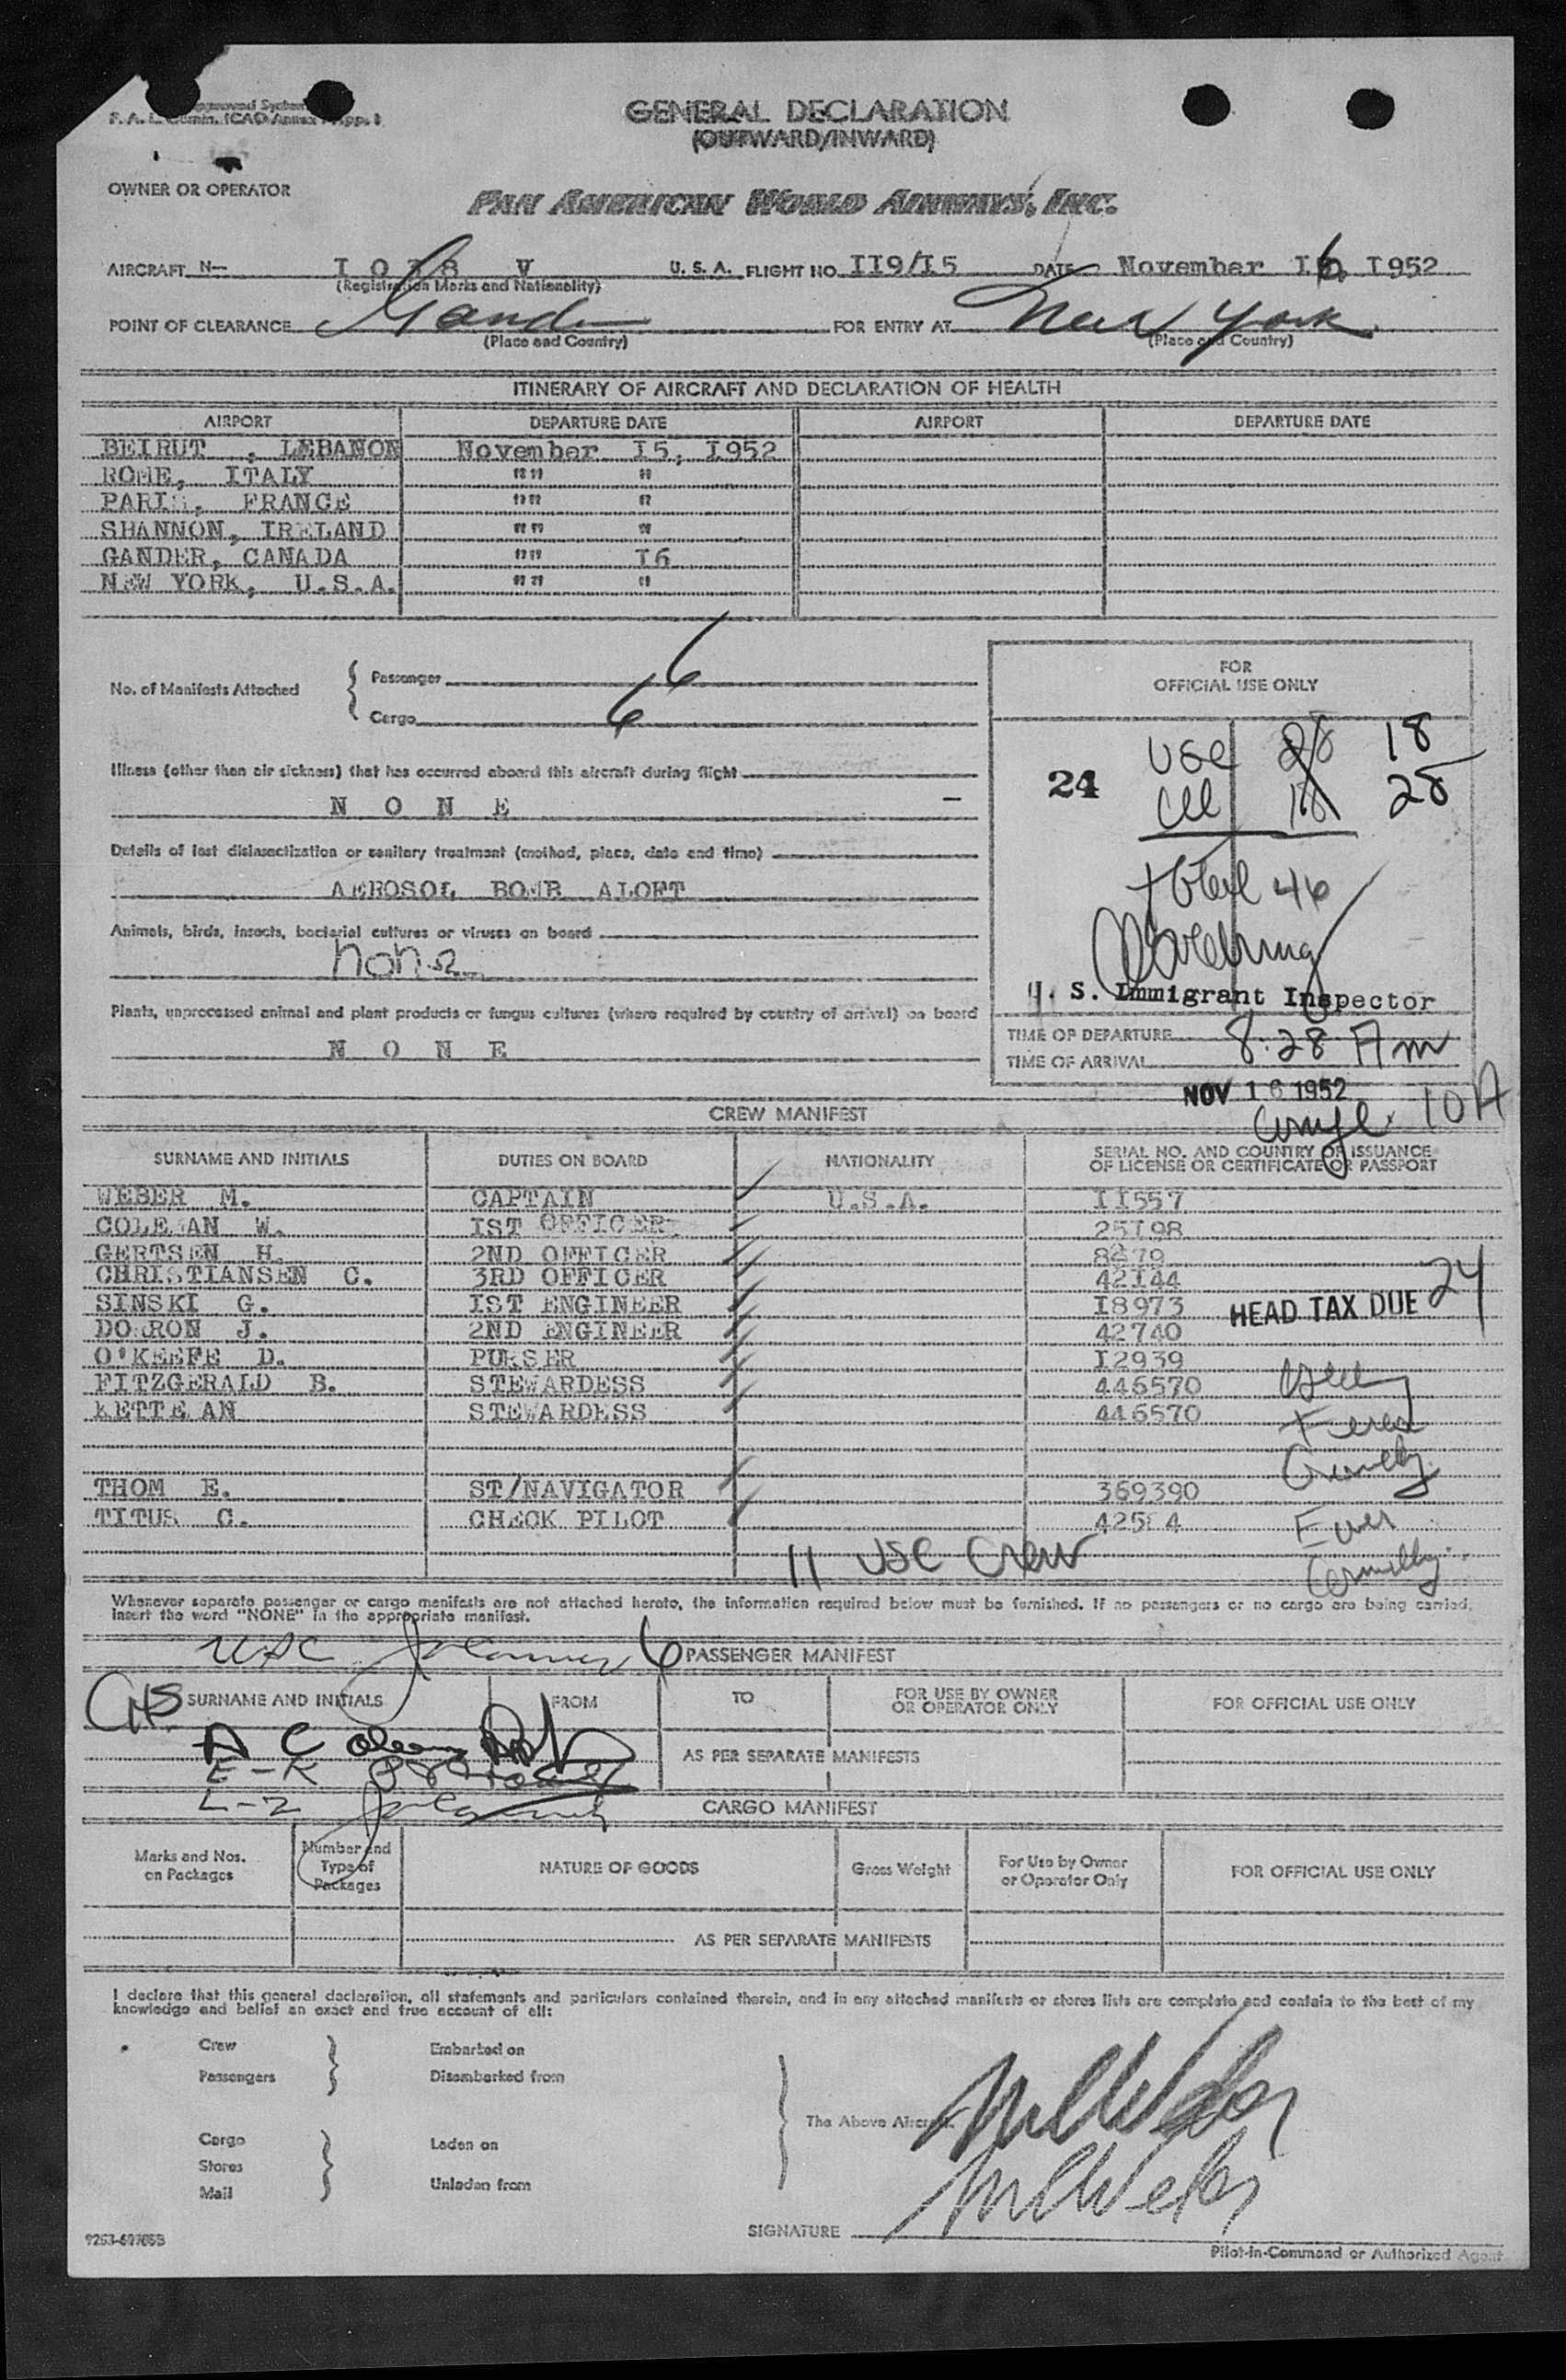 F. A. L. Comm. (ICAO Annex
GENERAL DECLARATION
(OUTWARD/INWARD)
OWNER OR OPERATOR
PAN AMERICAN WORLD AIRWAYS, INC.
AIRCRAFT N— U. S. A. FLIGHT NO. II9/I5 DATE November I6, I952
(Registration Marks and Nationality)
POINT OF CLEARANCE Gander FOR ENTRY AT New York
(Place and Country) (Place and Country)
ITINERARY OF AIRCRAFT AND DECLARATION OF HEALTH
AIRPORT DEPARTURE DATE AIRPORT DEPARTURE DATE
BEIRUT , LEBANON November I5, I952
ROME, ITALY "" "
PARIS, FRANCE "" "
SHANNON, IRELAND "" "
GANDER, CANADA "" I6
NEW YORK, U.S.A. "" "
No. of Manifests Attached
Passenger 6
Cargo 6
FOR
OFFICIAL USE ONLY
24
USC 28 18
18 28
total 46
U. S. Immigrant Inspector
TIME OF DEPARTURE 8:28 Am
TIME OF ARRIVAL
NOV 16 1952
10A
Illness (other than air sickness) that has occurred aboard this aircraft during flight
N O N E
Details of last disinsectization or sanitary treatment (method, place, date and time)
AEROSOL BOMB ALOFT
Animals, birds, insects, bacterial cultures or viruses on board
none
Plants, unprocessed animal and plant products or fungus cultures (where required by country of arrival) on board
N O N E
CREW MANIFEST
SURNAME AND INITIALS DUTIES ON BOARD NATIONALITY SERIAL NO. AND COUNTRY OF ISSUANCE
OF LICENSE OR CERTIFICATE OR PASSPORT
WEBER M. CAPTAIN U.S.A. II557
COLEMAN W. IST OFFICER 25I98
GERTSEN H. 2ND OFFICER
CHRISTIANSEN C. 3RD OFFICER 42I44
SINSKI G. IST ENGINEER I8973
HEAD TAX DUE 24
J. 2ND ENGINEER 42740
O'KEEFE D. PURSER I2939
FITZGERALD B. STEWARDESS 446570
STEWARDESS 446570
THOM E. ST/NAVIGATOR 369390
TITUS C. CHECK PILOT
11 USC Crew
Whenever separate passenger or cargo manifests are not attached hereto, the information required below must be furnished. If no passengers or no cargo are being carried,
insert the word "NONE" in the appropriate manifest.
6
PASSENGER MANIFEST
SURNAME AND INITIALS FROM TO FOR USE BY OWNER
OR OPERATOR ONLY FOR OFFICIAL USE ONLY
AS PER SEPARATE MANIFESTS
E-K
L-Z
CARGO MANIFEST
Marks and Nos.
on Packages
Number and
Type of
Packages
NATURE OF GOODS
Gross Weight
For Use by Owner
or Operator Only
FOR OFFICIAL USE ONLY
AS PER SEPARATE MANIFESTS
I declare that this general declaration, all statements and particulars contained therein, and in any attached manifests or stores lists are complete and contain to the best of my
knowledge and belief an exact and true account of all:
Crew Embarked on
Passengers Disembarked from
The Above Aircraft.
Cargo Laden on
Stores
Mail Unladen from
SIGNATURE
Pilot-in-Command or Authorized Agent